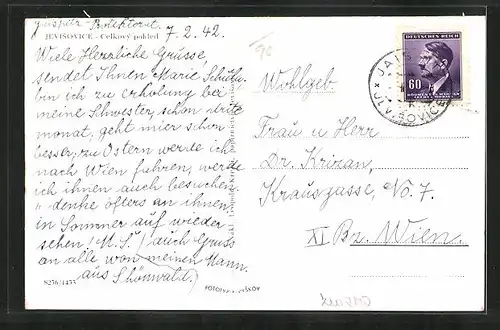 Protektorat 7. 2. 42.
JEVIŠOVICE - Celkový pohled
Viele Herrliche Grüsse,
sendet Ihnen Marie
bin ich zu erholung bei
meine Schwester, schon dritte
monat, geht mir schon
besser, zu Ostern werde ich
nach Wien fahren, werde
ich ihnen auch besuchen
denke öfters an ihnen,
in Sommer auf wieder
sehen! auch Gruss
an alle von meinen Mann.
aus Schönwald.
S256/1433
90
DEUTSCHES REICH
60
BÖHMEN UND MÄHREN
Wohlgeb.
Frau u Herr
Dr. Krizan,
Krausgasse, No. 7.
XI Bz. Wien.